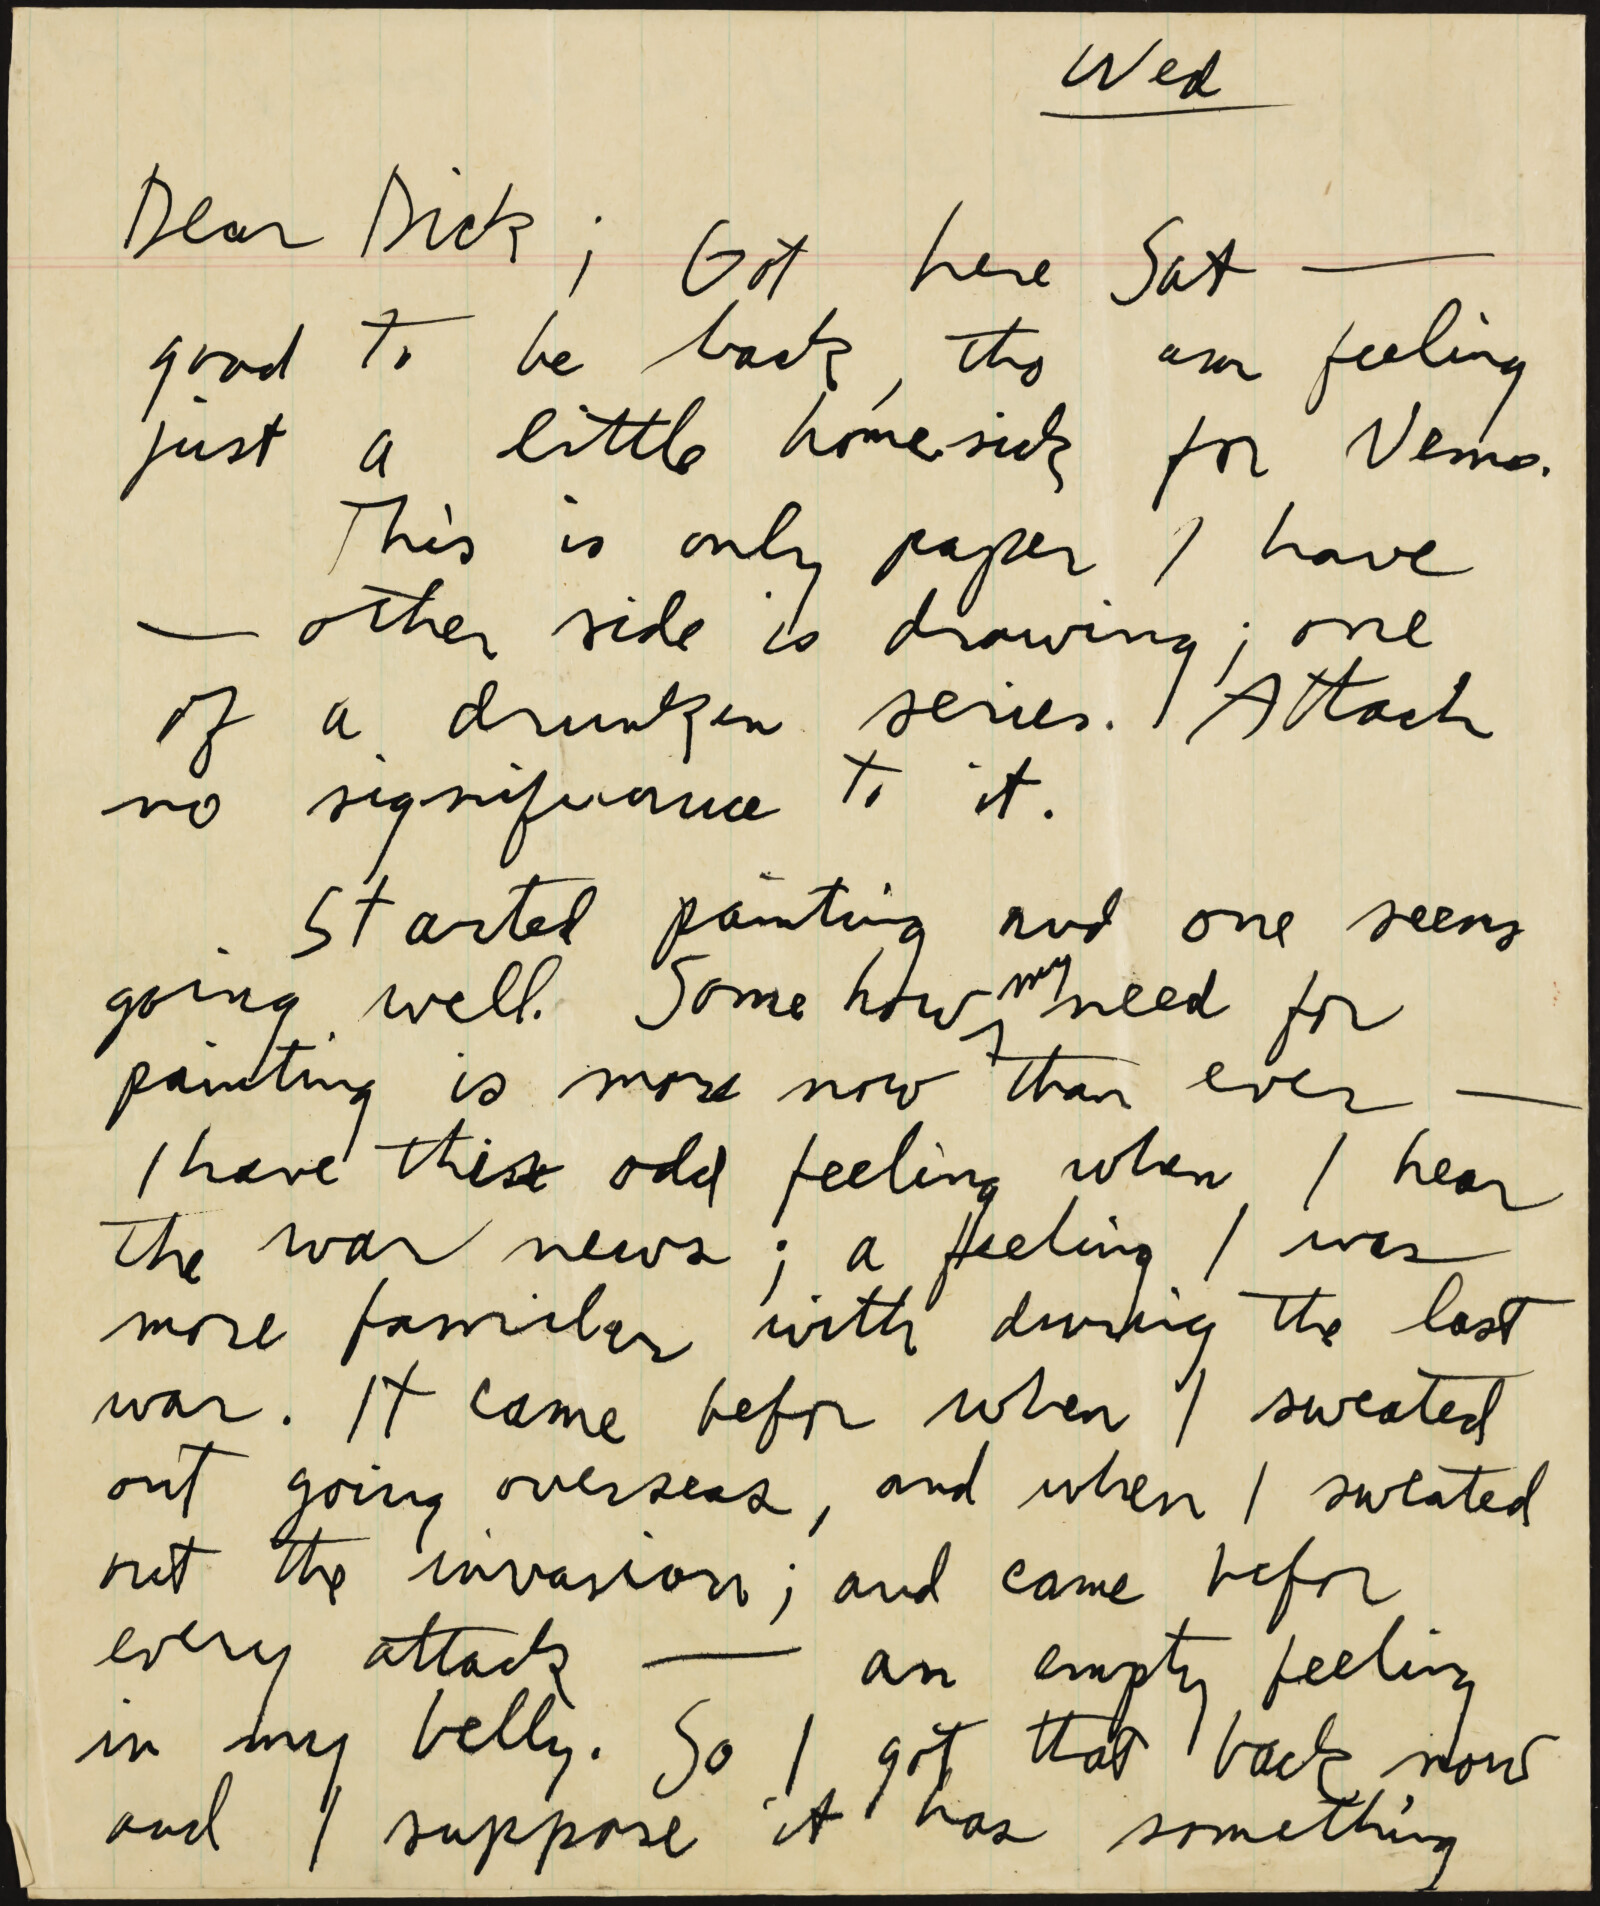 Wed
Dear Dick; Got here Sat —
good to be back, tho am feeling
just a little homesick for
This is only paper I have
— other side is drawing; one
of a drunken series. Attach
no significance to it.
Started painting and one seems
going well. Somehow my need for
painting is more now than ever —
I have this odd feeling when I hear
the war news; a feeling I was
more familiar with during the last
war. It came befor when I sweated
out going overseas, and when I sweated
out the invasion; and came befor
every attack — an empty feeling
in my belly. So I got that back now
and I suppose it has something